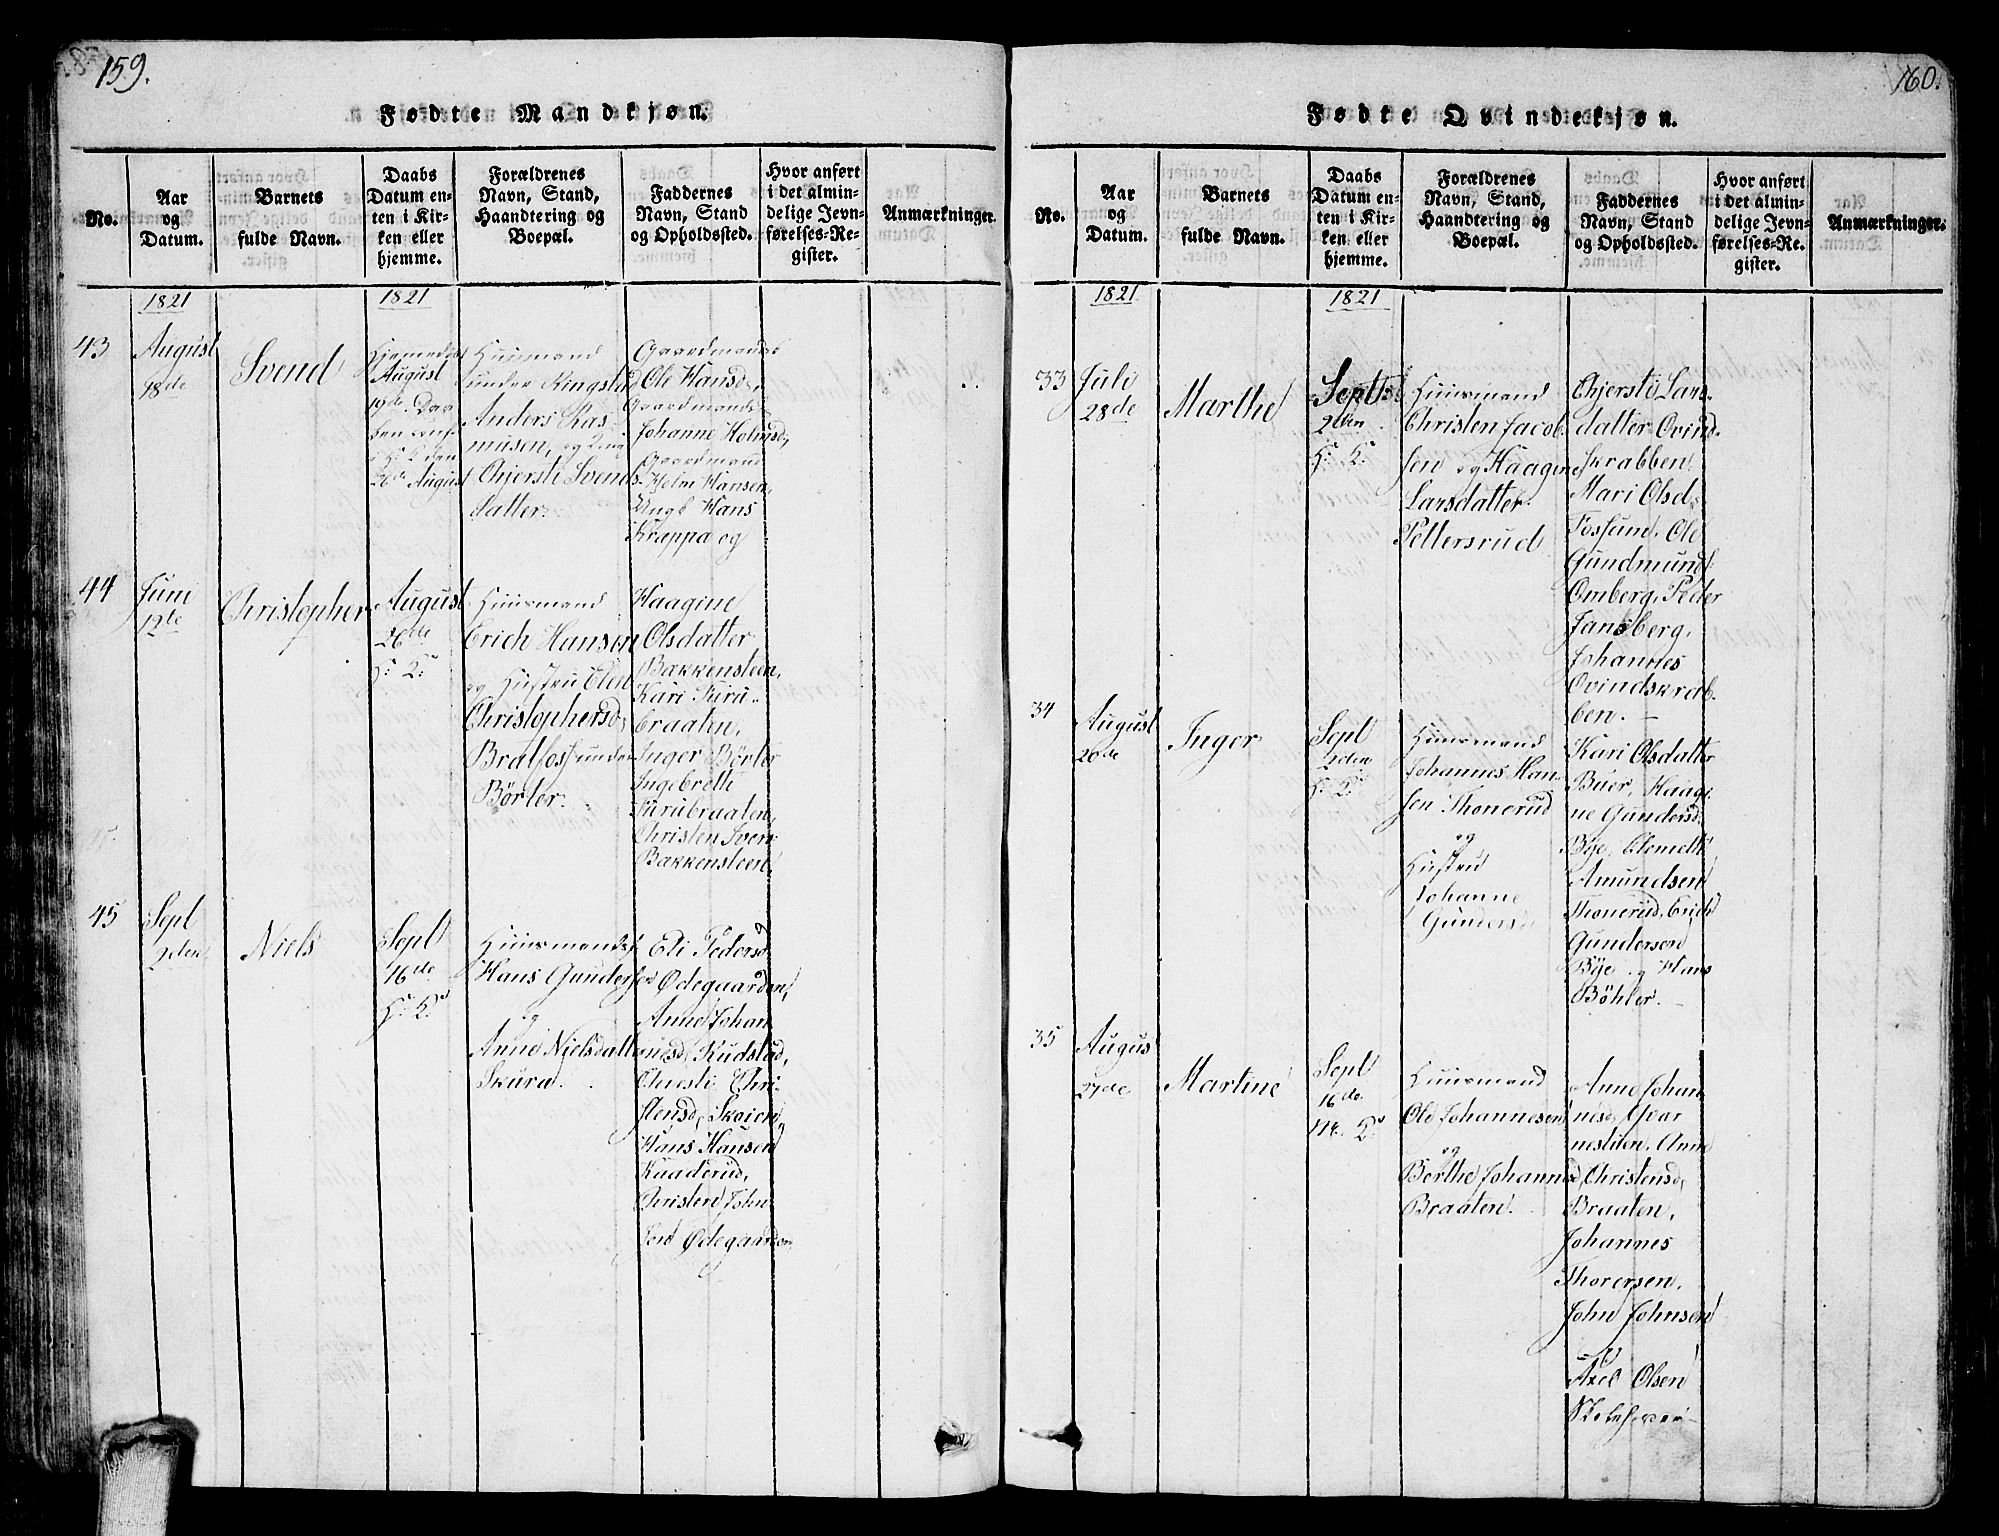 159.
Fødte Mandkjøn.
No.
Aar
og
Datum.
Barnets
fulde Navn.
Daabs
Datum en-
ten i Kir-
ken eller
hjemme.
Forældrenes
Navn, Stand,
Haandtering og
Boepæl.
Faddernes
Navn, Stand
og Opholdssted.
Hvor anført
i det almin-
delige Jevn-
førelses-Re-
gister.
Anmærkninger.
1821
1821
43
August
18de
Svend
Hjemedøbt
August
19de
26de August
Huusmand
under Ringstad
Anders Ras-
musen, og
Chjersti Svends-
datter.
Gaardmands
Ole Hansd,
Gaardmands
Johanne Holmsd,
Gaardmand
Helm Hansen,
Ungk Hans
Krappa og
44
Juni
12te
Christopher
August
26de
H: K:
Huusmand
Erich Hansen
og Hustru Elen
Christophersd,
Bratfoss under
Börter.
Haagine
Olsdatter
Bakkensteen,
Kari Furu-
braatn,
Inger Börter
Ingebrett
Furubraaten,
Christen Svens
Bakkensteen.
45
Sept
2den
Niels
Sept
16de
H: K:
Huusmand
Hans Gundersen
og
Anne Nielsdatt
Skura.
Eli Pedersd
Ødegaarden,
Anne Johan-
nesd, Rudstad,
Chri-
stensd, Skaien,
Hans Hansen
Knaderud,
Christen John-
sen Ødegaarden
160.
Fødte Qvindekjøn.
No.
Aar
og
Datum.
Barnets
fulde Navn.
Daabs
Datum en-
ten i Kir-
ken eller
hjemme.
Forældrenes
Navn, Stand,
Haandtering og
Boepæl.
Faddernes
Navn, Stand
og Opholdssted.
Hvor anført
i det almin-
delige Jevn-
førelses-Re-
gister.
Anmærkninger.
1821
1821
33
Juli
28de
Marthe
Sept:
2den
H: K:
Huusmand
Christen Jacob-
sen og Haagine
Larsdatter
Pettersrud
Chjersti Lars-
datter Qvind-
skrabben,
Mari Olsd
Fossund, Ole
Gundmunds
Omberg, Peder
Jansberg,
Johannes
Qvindskrab-
ben.
34
August
20de
Inger
Sept
2den
H: K:
Huusmand
Johannes Han-
sen Thonerud
og
Hustru
Johanne
Gunders
Kari Olsdatter
Buer, Haagi-
ne Gundersd,
Bÿe, Clemett
Amundsen
Thonerud, Erich
Gundersen
Bÿe og Hans
Böhler.
35
Augus
27de
Martine
Sept
16de
K:
Huusmand
Ole Johannesen
og
Berthe Johannesd,
Braaten.
Anne Johan-
nesd,
Anne
Christensd,
Braaten,
Johannes
Thorersen,
John Johnsen
og
Axel Olsen